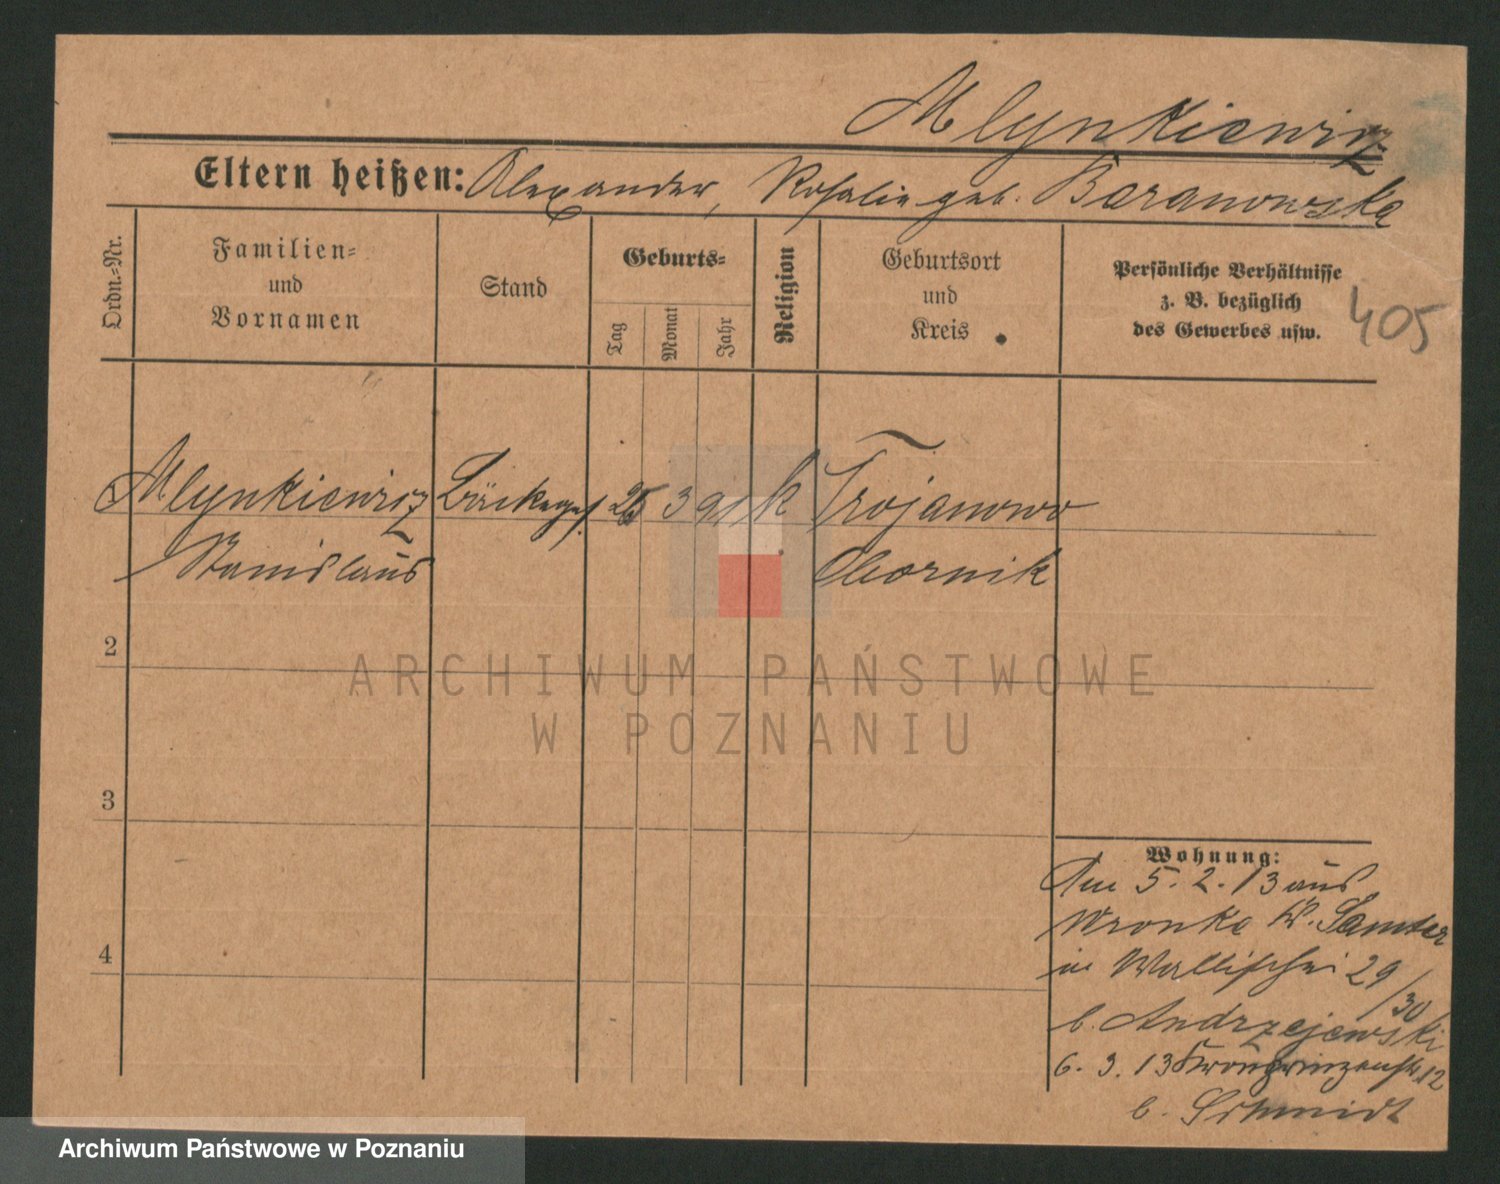 Mlynkiewicz
Eltern heißen: Alexander, Rosalie geb. Baranowska
Ordn.=Nr.
Familien=
und
Vornamen
Stand
Geburts=
Tag
Monat
Jahr
Religion
Geburtsort
und
Kreis
Persönliche Verhältnisse
z. B. bezüglich
des Gewerbes usw.
405
Mlynkiewicz Bäckerges. 3 91 k Trojanowo
Stanislaus Obornik
2
3
4
Wohnung:
Am 5. 2. 13 aus
Wronke K. Samter
in Wallischei 29
/30
b. Andrzejewski
6. 3. 13 Kronprinzenstr. 12
b. Schmidt
ARCHIWUM PAŃSTWOWE
W POZNANIU
Archiwum Państwowe w Poznaniu